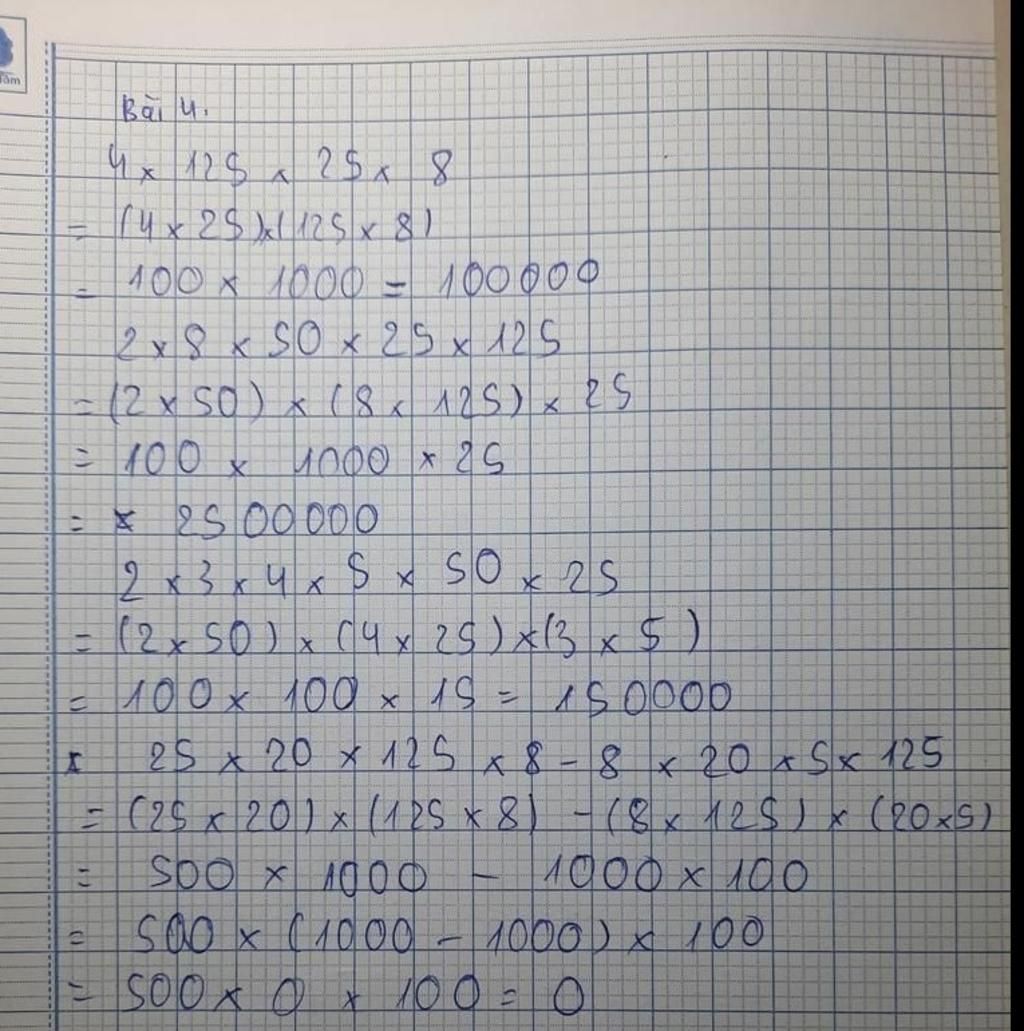 Tâm
Bài 4.
4 × 125 × 25 × 8
= (4 × 25) × (125 × 8)
= 100 × 1000 = 100000
2 × 8 × 50 × 25 × 125
= (2 × 50) × (8 × 125) × 25
= 100 × 1000 × 25
= × 2500000
2 × 3 × 4 × 5 × 50 × 25
= (2 × 50) × (4 × 25) × (3 × 5)
= 100 × 100 × 15 = 150000
× 25 × 20 × 125 × 8 - 8 × 20 × 5 × 125
= (25 × 20) × (125 × 8) - (8 × 125) × (20 × 5)
= 500 × 1000 - 1000 × 100
= 500 × (1000 - 1000) × 100
= 500 × 0 × 100 = 0